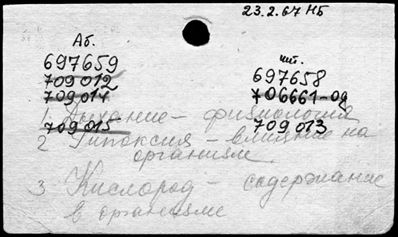 23.2.67 НБ
Аб.
697659
709012
709014
709015
чит.
697658
706661-од
709013
1. Дыхание - физиология
2 Гипоксия - влияние на
организм
3 Кислород - содержание
в организме